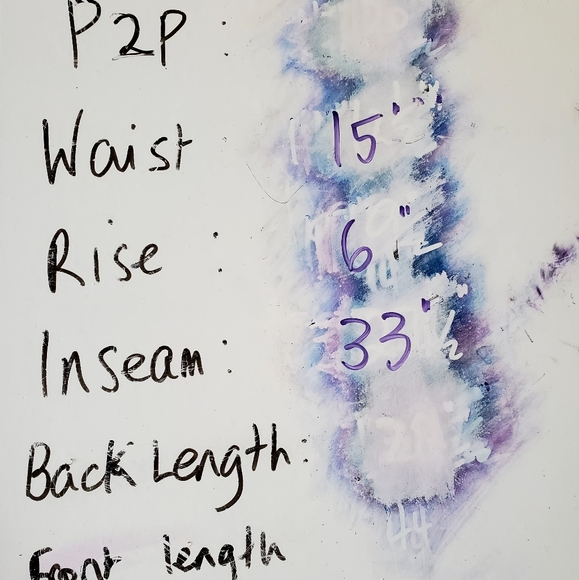 P2P :
Waist 15"
Rise : 6"
Inseam: 33"
Back Length:
Front length